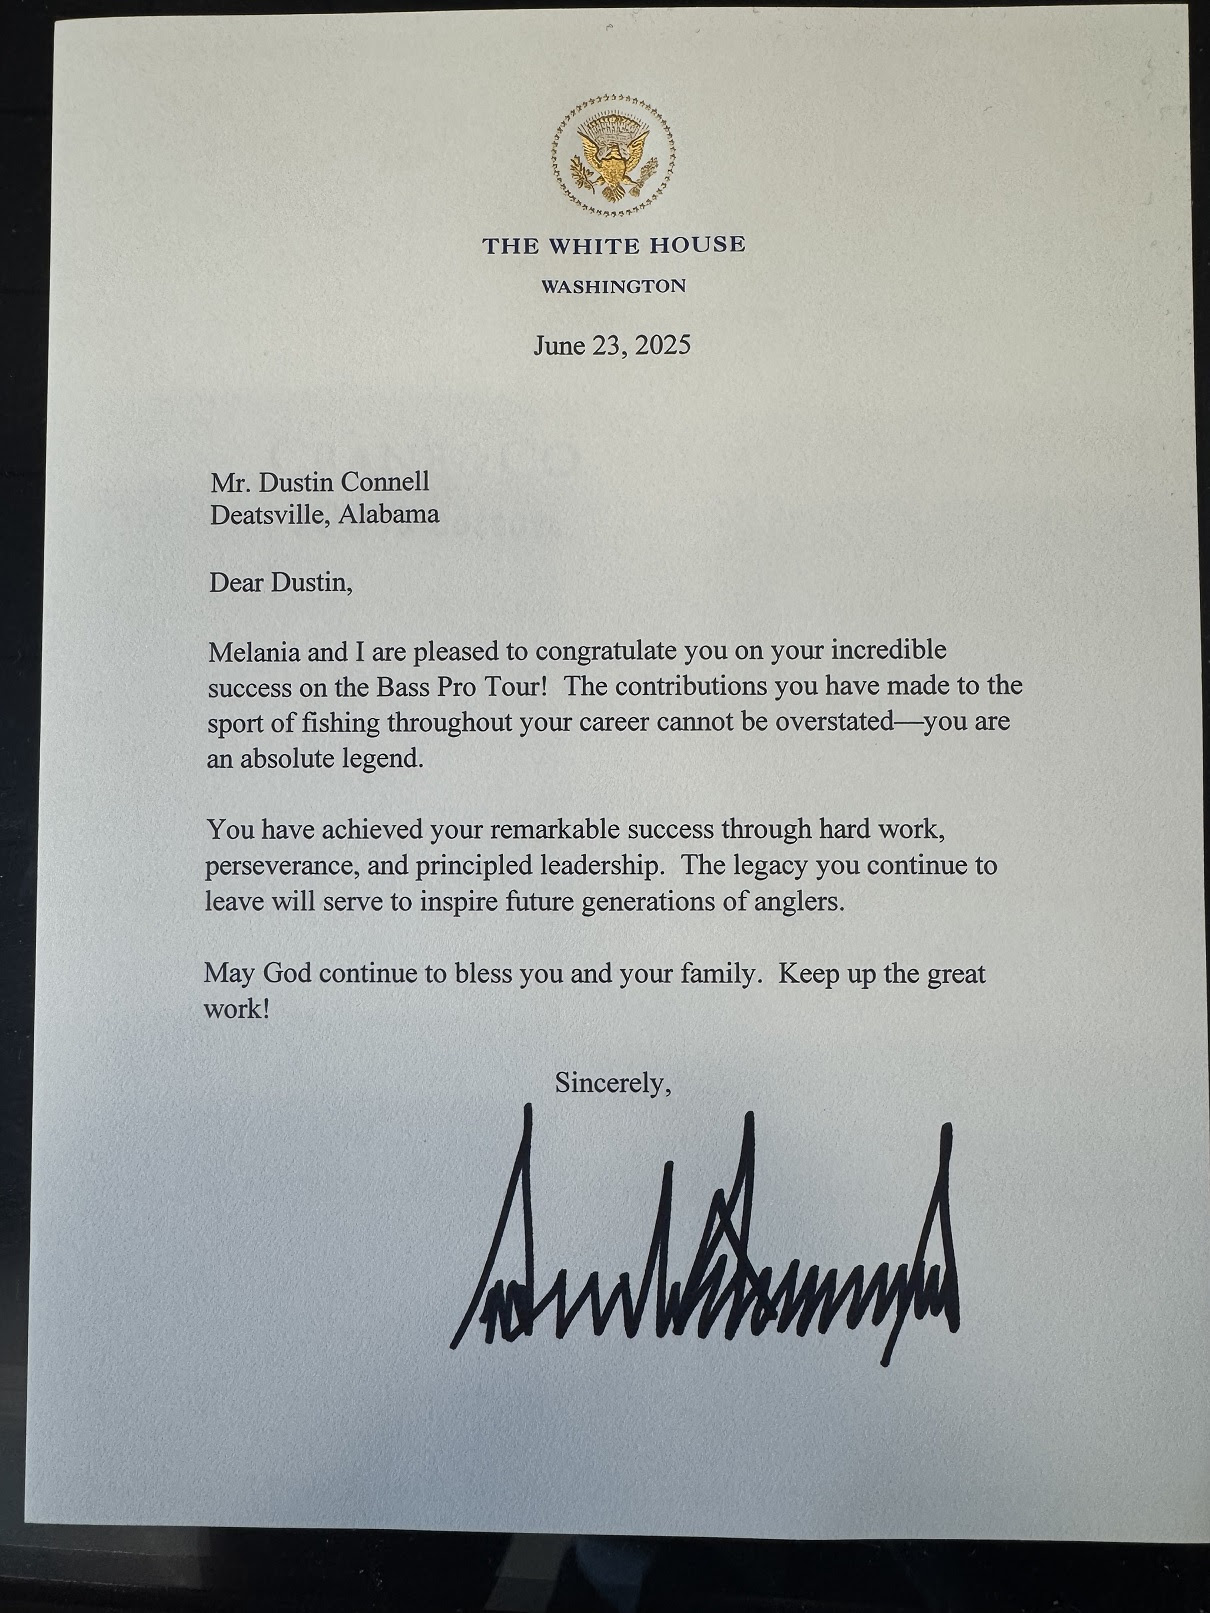 THE WHITE HOUSE
WASHINGTON
June 23, 2025
Mr. Dustin Connell
Deatsville, Alabama
Dear Dustin,
Melania and I are pleased to congratulate you on your incredible
success on the Bass Pro Tour!  The contributions you have made to the
sport of fishing throughout your career cannot be overstated—you are
an absolute legend.
You have achieved your remarkable success through hard work,
perseverance, and principled leadership.  The legacy you continue to
leave will serve to inspire future generations of anglers.
May God continue to bless you and your family.  Keep up the great
work!
Sincerely,